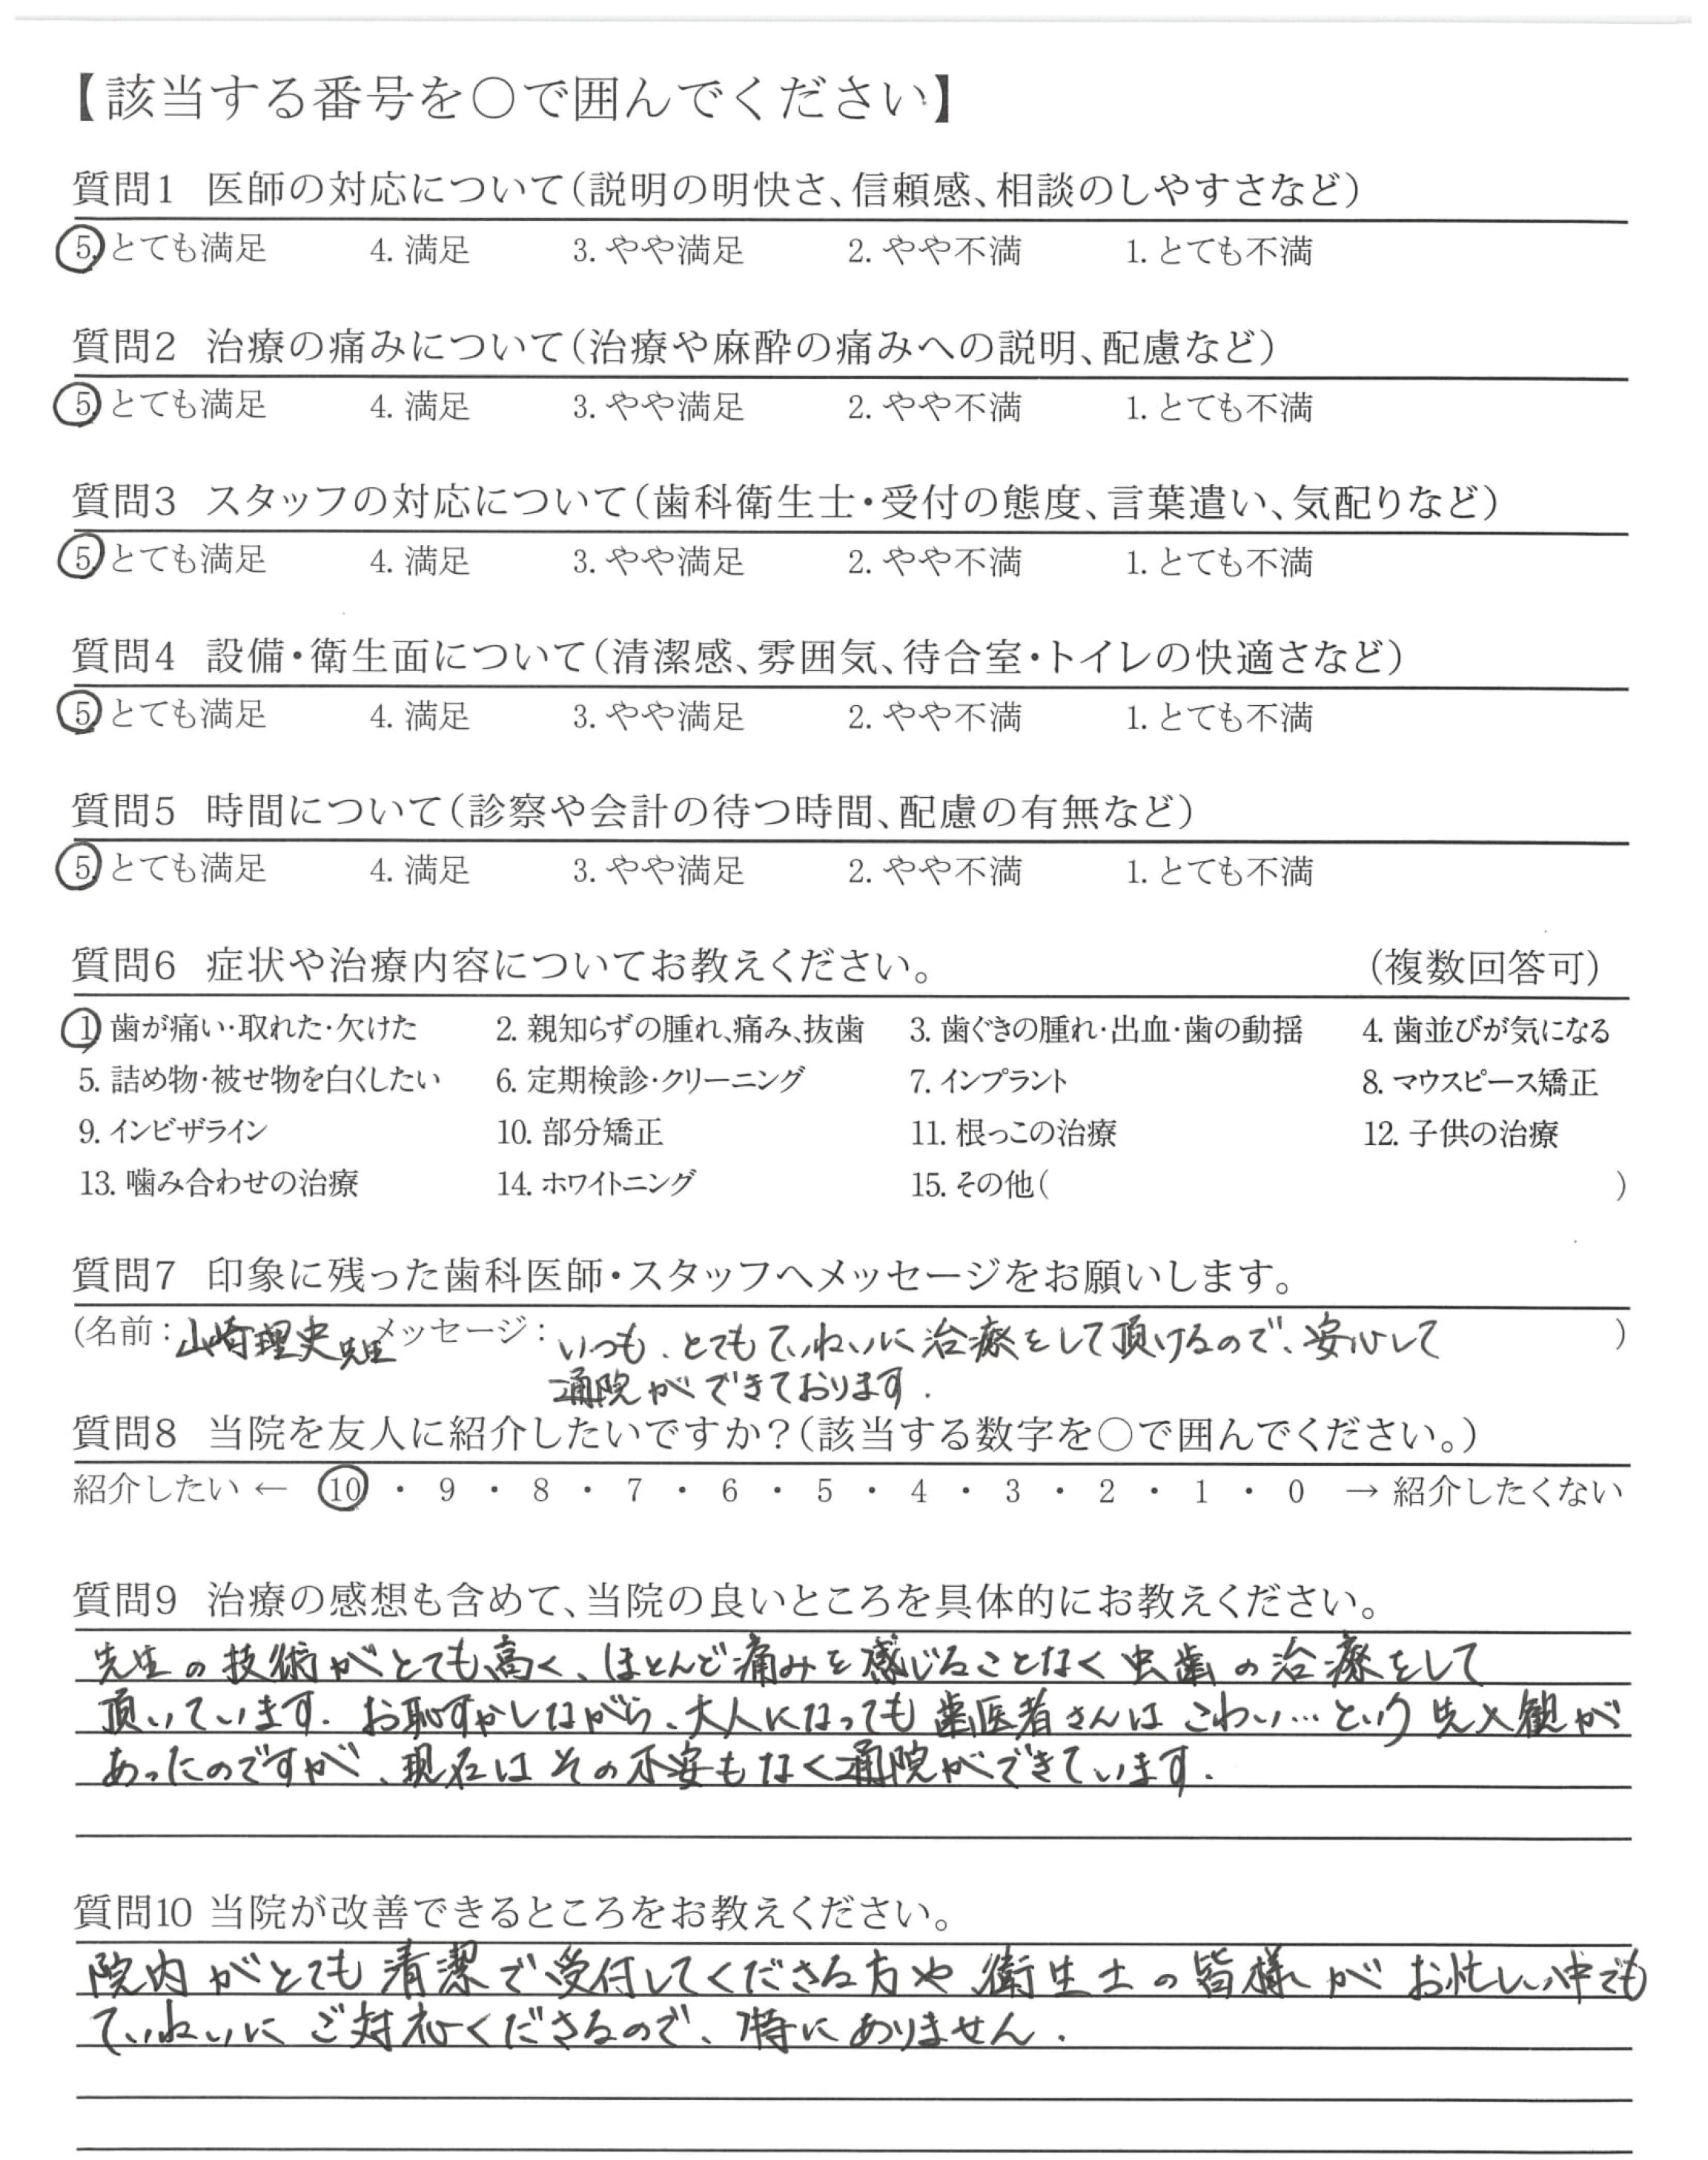 【該当する番号を○で囲んでください】
質問1 医師の対応について(説明の明快さ、信頼感、相談のしやすさなど)
5. とても満足 4. 満足 3. やや満足 2. やや不満 1. とても不満
質問2 治療の痛みについて(治療や麻酔の痛みへの説明、配慮など)
5. とても満足 4. 満足 3. やや満足 2. やや不満 1. とても不満
質問3 スタッフの対応について(歯科衛生士・受付の態度、言葉遣い、気配りなど)
5. とても満足 4. 満足 3. やや満足 2. やや不満 1. とても不満
質問4 設備・衛生面について(清潔感、雰囲気、待合室・トイレの快適さなど)
5. とても満足 4. 満足 3. やや満足 2. やや不満 1. とても不満
質問5 時間について(診察や会計の待つ時間、配慮の有無など)
5. とても満足 4. 満足 3. やや満足 2. やや不満 1. とても不満
質問6 症状や治療内容についてお教えください。 (複数回答可)
1. 歯が痛い・取れた・欠けた 2. 親知らずの腫れ、痛み、抜歯 3. 歯ぐきの腫れ・出血・歯の動揺 4. 歯並びが気になる
5. 詰め物・被せ物を白くしたい 6. 定期検診・クリーニング 7. インプラント 8. マウスピース矯正
9. インビザライン 10. 部分矯正 11. 根っこの治療 12. 子供の治療
13. 噛み合わせの治療 14. ホワイトニング 15. その他( )
質問7 印象に残った歯科医師・スタッフへメッセージをお願いします。
(名前:山崎理史先生 メッセージ:いつも、とてもていねいに治療をして頂けるので、安心して )
通院ができております.
質問8 当院を友人に紹介したいですか?(該当する数字を○で囲んでください。)
紹介したい ← 10 ・ 9 ・ 8 ・ 7 ・ 6 ・ 5 ・ 4 ・ 3 ・ 2 ・ 1 ・ 0 → 紹介したくない
質問9 治療の感想も含めて、当院の良いところを具体的にお教えください。
先生の技術がとても高く、ほとんど痛みを感じることなく虫歯の治療をして
頂いています. お恥ずかしながら、大人になっても歯医者さんはこわい…という先入観が
あったのですが、現在はその不安もなく通院ができています.
質問10 当院が改善できるところをお教えください。
院内がとても清潔で受付してくださる方や、衛生士の皆様がお忙しい中でも
ていねいにご対応くださるので、特にありません.